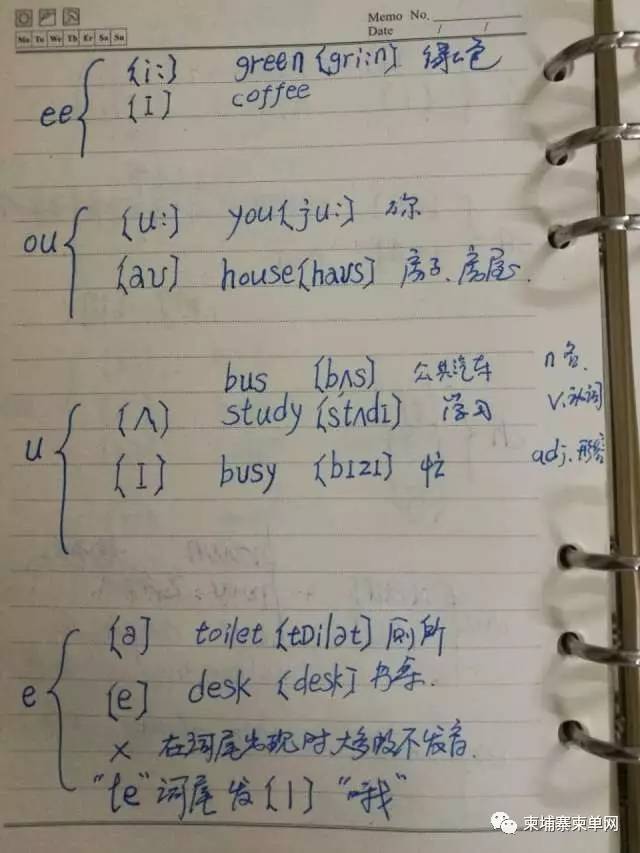 Memo No.
Mo Tu We Th Fr Sa Su
Date / /
ee
{i:] green {gri:n} 绿色
{I] coffee
ou
{u:] you{ju:] 你
{aʊ] house{haʊs] 房子、房屋
bus {bʌs} 公共汽车 n 名.
u
{ʌ] study {stʌdI] 学习 v. 动词
{I] busy {bIzI} 忙 adj. 形容
e
{ə] toilet {tɒilət} 厕所
{e] desk {desk] 书桌.
× 在词尾出现时大多数不发音.
"le" 词尾发 {l} "哦"
柬埔寨柬单网